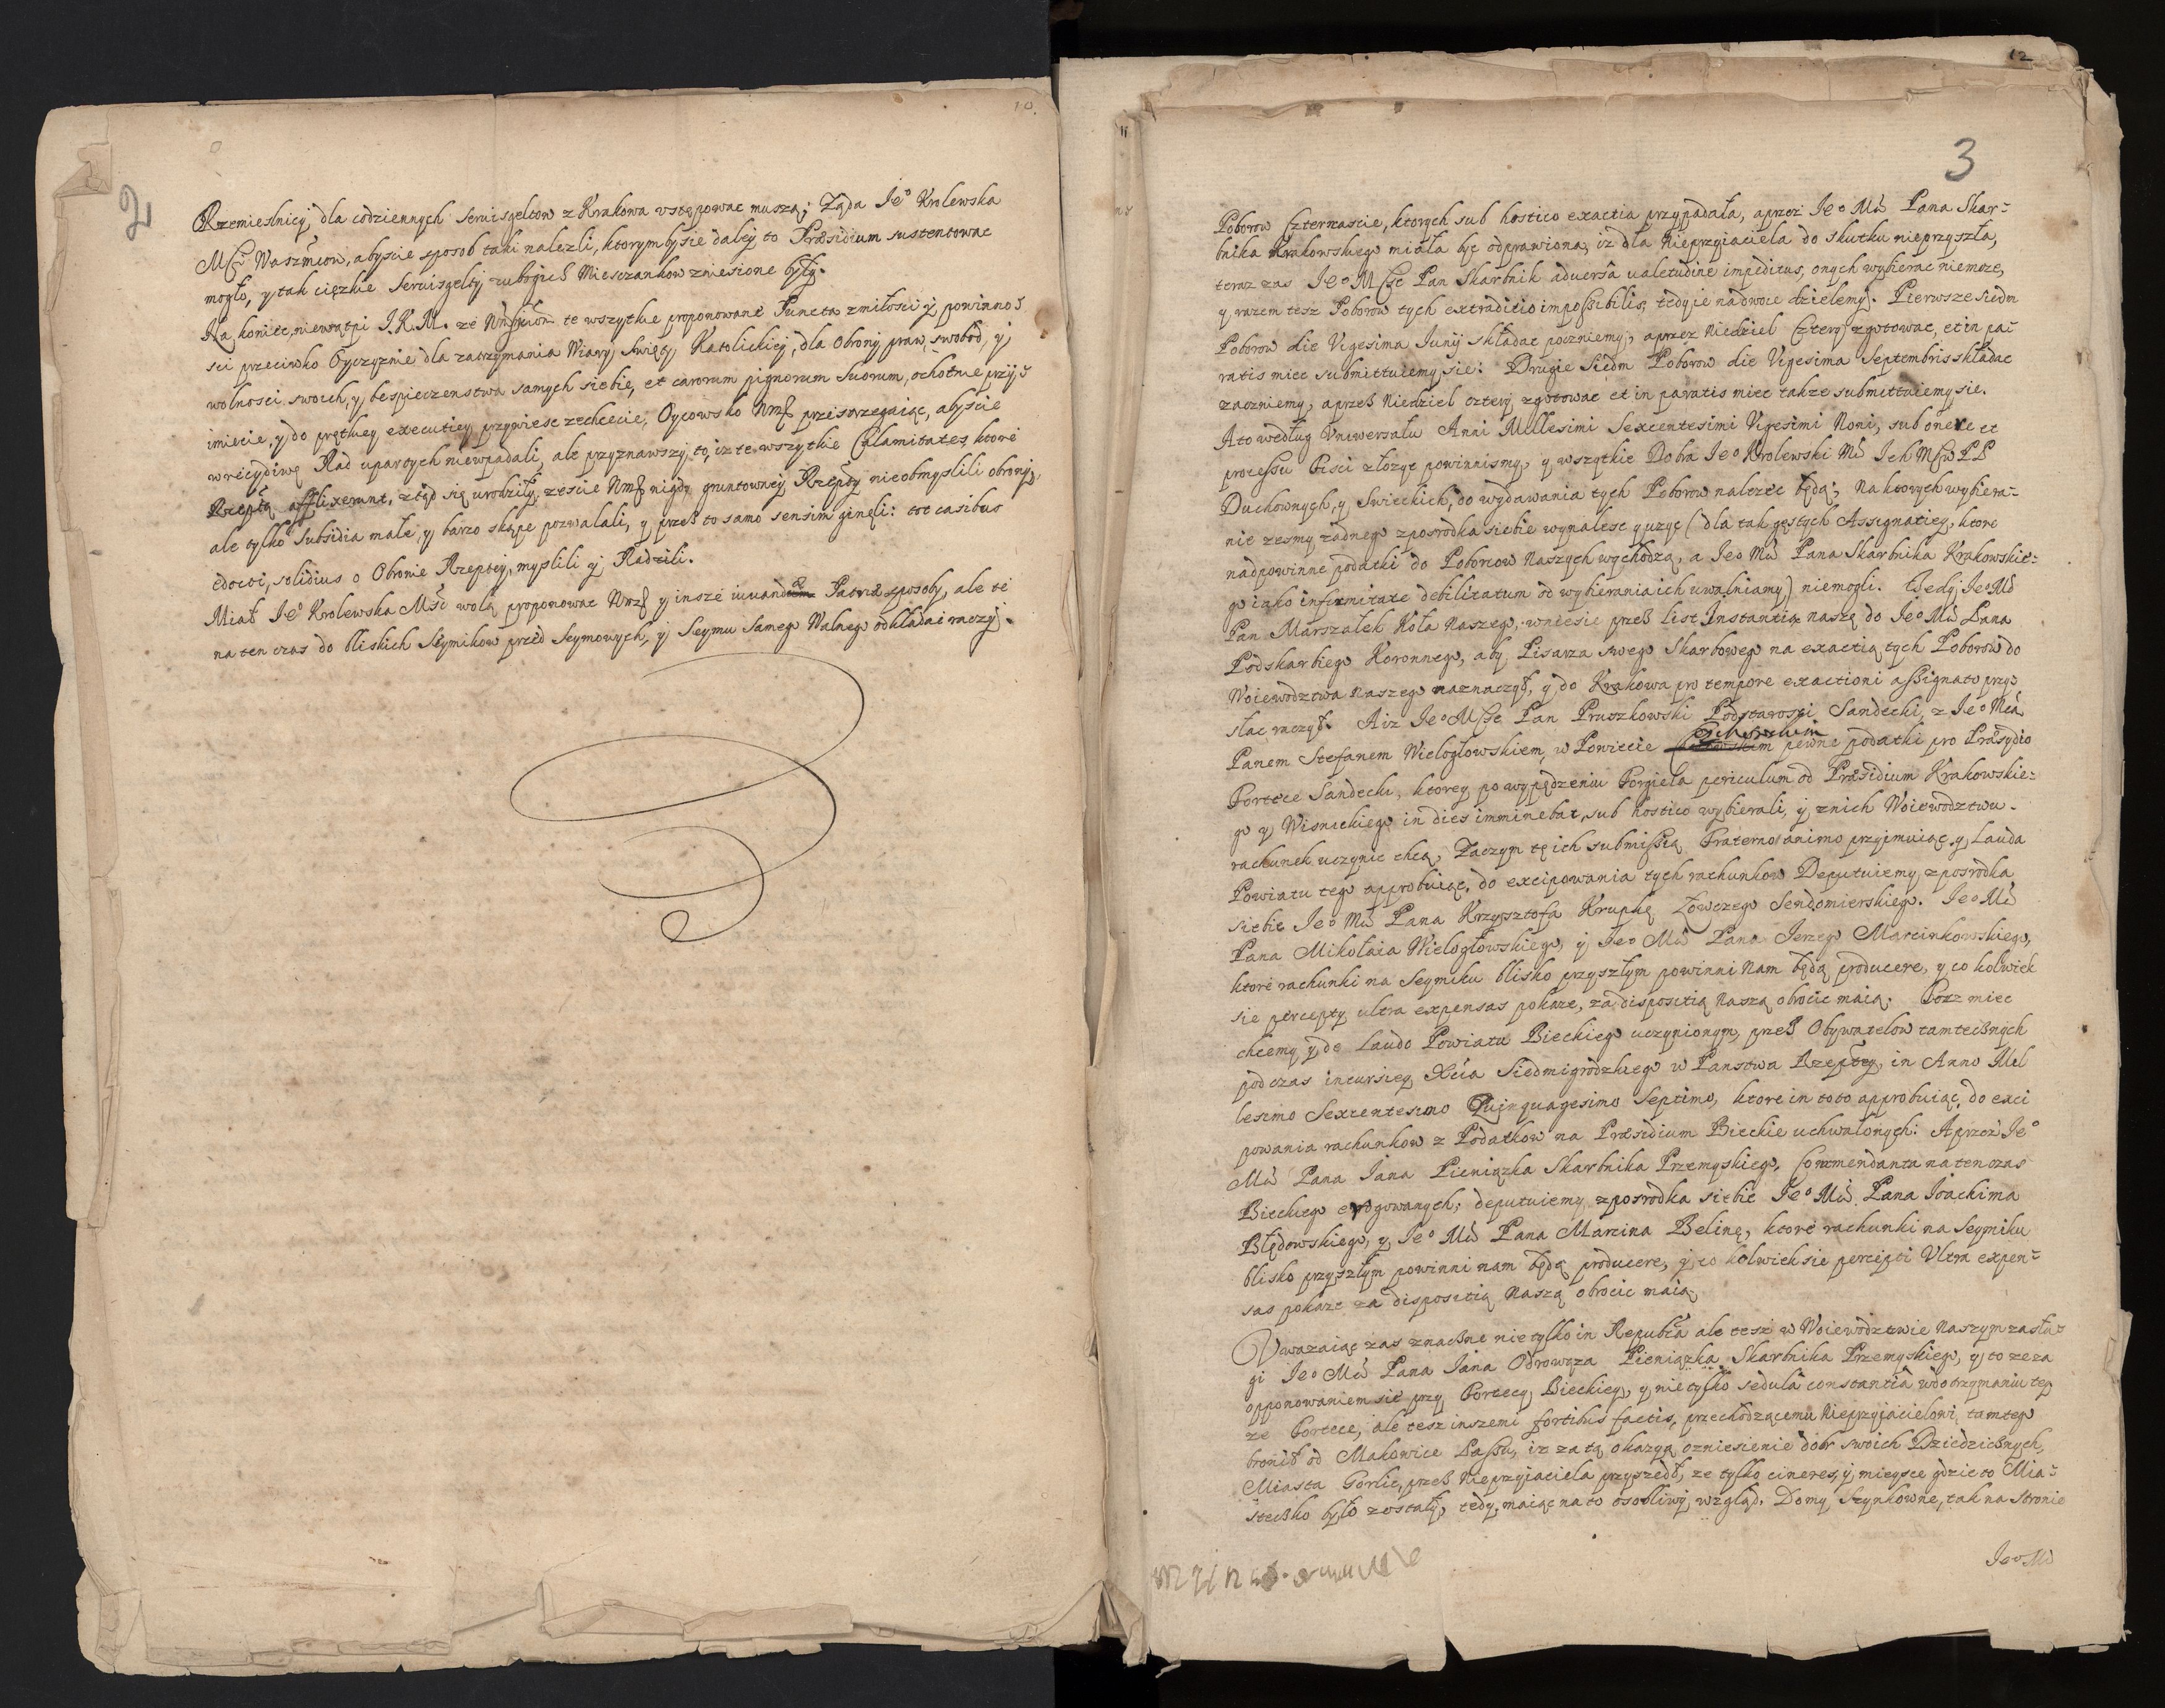 10.
2
Rzemieslnicy, dla codziennych serwisgeltow z Krakowa vstępowac muszą; Ząda Je° Krolewska
Mść Waszmciow, abyscie sposob taki nalezli, ktorymby sie daley to Præsidium sustentowac
mogło, y tak cięzkie Serwisgelty zubogich Miesczankow zniesione były.
Na koniec, niewątpi J.K.M. ze te wszytkie proponowane Puncta z miłosci y powinno=
sci przeciwko Oyczyznie dla zaczymania Wiary Swięty Katolickiej, dla obrony praw, swobod, y
wolnosci swoich, y bespieczenstwa samych siebie, et carorum pignorum suorum, ochotnie przyi=
miecie, y do prętkiey executiey przywiesc zechcecie, Oycowsko przestrzegaiąc, abyscie
w recydiwę Rad upartych niewpadali, ale przyznawszy to, iz te wszytkie Calamitates, ktore
Rzeptą afflixerunt, ztąd się urodziły, zescie nigdy gruntowney Rzeptey nieobmyslili obrony,
ale tylko Subsidia małe, y barzo skąpe pozwalali, y przez to samo sensim ginęli: tot casibus
edocti, solidius o Obronie Rzeptey, myslili y Radzili.
Miał Je° Krolewska Mść wolą proponowac y insze iuvandæ Patriæ sposoby, ale te
na ten czas do bliskich Seymikow przed Seymowych, y Seymu samego Walnego odkładac raczy.
12
11
3
Poborow Czternascie, ktorych sub hostico exactia przypadała, a przez Je° Mći Pana Skar=
bnika Krakowskiego miała byc odprawiona, iz dla Nieprzyiaciela do skutku nieprzyszła,
teraz zas Je° Mść Pan Skarbnik adversâ valetudine impeditus, onych wybierac niemoze,
y razem tesz Poborow tych extraditio impossibilis, tedy ie nadwoie dzielemy. Pierwsze siedm
Poborow die Vigesima Junij składac poczniemy, a przez Niedziel Cztery zgotowac, et in pa=
ratis miec submittuiemy sie: Drugie Siedm Poborow die Vigesima Septembris składac
zaczniemy, a przez Niedziel cztery zgotowac et in paratis miec takze submittuiemy sie.
A to według Vniwersału Anni Millesimi Sexcentesimi Vigesimi Noni, sub onere et
processu Cisci złozyc powinnismy, y wszytkie Dobra Je° Krolewski Mći Ich Mćiow PP
Duchownych, y Swieckich, do wydawania tych Poborow nalezec będą; Na ktorych wybiera=
nie zesmy zadnego zposrodka siebie wynalesc y uzyc (dla tak gęstych Assignatiey, ktore
nadpowinne podatki do Poborcow Naszych wychodzą, a Je° Mći Pana Skarbnika Krakowskie=
go iako infirmitate debilitatum od wybierania ich uwalniamy) niemogli. Tedy Je° Mć
Pan Marszałek Koła Naszego, wniesie przez list Instantią naszą do Je° Mći Pana
Podskarbiego Koronnego, aby Pisarza swego Skarbowego na exactią tych Poborow do
Woiewodztwa Naszego naznaczył, y do Krakowa pro tempore exactioni assignato przy=
słac raczył. A iz Je° Mść Pan Pruszkowski Podstarosci Sandecki, z Je° Mcią
Panem Stefanem Wielogłowskiem, w Powiecie Czchowskim pewne podatki pro Præsydio
Fortece Sandecki, ktorey po wypędzeniu Forgiela periculum od Præsidium Krakowskie=
go y Wisnickiego in dies imminebat, sub hostico wybierali, y znich Woiewodztwu
rachunek uczynic chcą, Zaczym tę ich submissią Fraterno animo przyimuiąc, y Lauda
Powiatu tego approbuiąc, do excipowania tych rachunkow Deputuiemy zposrodka
siebie Je° Mći Pana Krzysztofa Krupkę Łowczego Sendomierskiego. Je° Mći
Pana Mikołaia Wielogłowskiego, y Je° Mći Pana Jerzego Marcinkowskiego,
ktore rachunki na Seymiku blisko przyszłym powinni Nam będą producere, y co kolwiek
sie percepty ultra expensas pokaze, za dispositią Naszą obrocic maią. Tosz miec
chcemy y de Laudo Powiatu Bieckiego uczynionym, przez Obywatelow tamtecznych
pod czas incursiey Xcia Siedmigrodzkiego w Panstwa Rzeptey, in Anno Mil
lesimo Sexcentesimo Quinquagesimo Septimo, ktore in toto approbuiąc, do exci
powania rachunkow z Podatkow na Præsidium Bieckie uchwalonych: A przez Je°
Mći Pana Jana Pieniązka Skarbnika Przemyskiego, Commendanta na ten czas
Bieckiego erogowanych; deputuiemy zposrodka siebie Je° Mći Pana Joachima
Błędowskiego, y Je° Mći Pana Marcina Belinę, ktore rachunki na Seymiku
blisko przyszłym powinni nam będą producere, y co kolwiek sie percepti Vltra expen=
sas pokaze za dispositią Naszą obrocic maią.
Vwazaiąc zas znaczne nie tylko in Republca ale tesz w Woiewodztwie Naszym zasłu=
gi Je° Mći Pana Jana Odrowąza Pieniązka Skarbnika Przemyskiego, y to ze za
opponowaniem sie przy Fortecy Bieckiey, y nie tylko sedulâ constantiâ w dotrzymaniu tey
ze Fortece, ale tesz inszemi fortibus factis, przechodzącemu Nieprzyiacielowi, tamtego
bronił od Makowice Passu, iz za tą okazyą o zniesienie dobr swoich Dziedzicznych,
Miasta Gorlic, przez Nieprzyiaciela przyszedł, ze tylko cineres, y mieysce gdzie to Mia=
steczko było zostały, tedy, maiąc na to osobliwy wzgląd. Domy Szynkowne, tak na stronie
Je° Mći